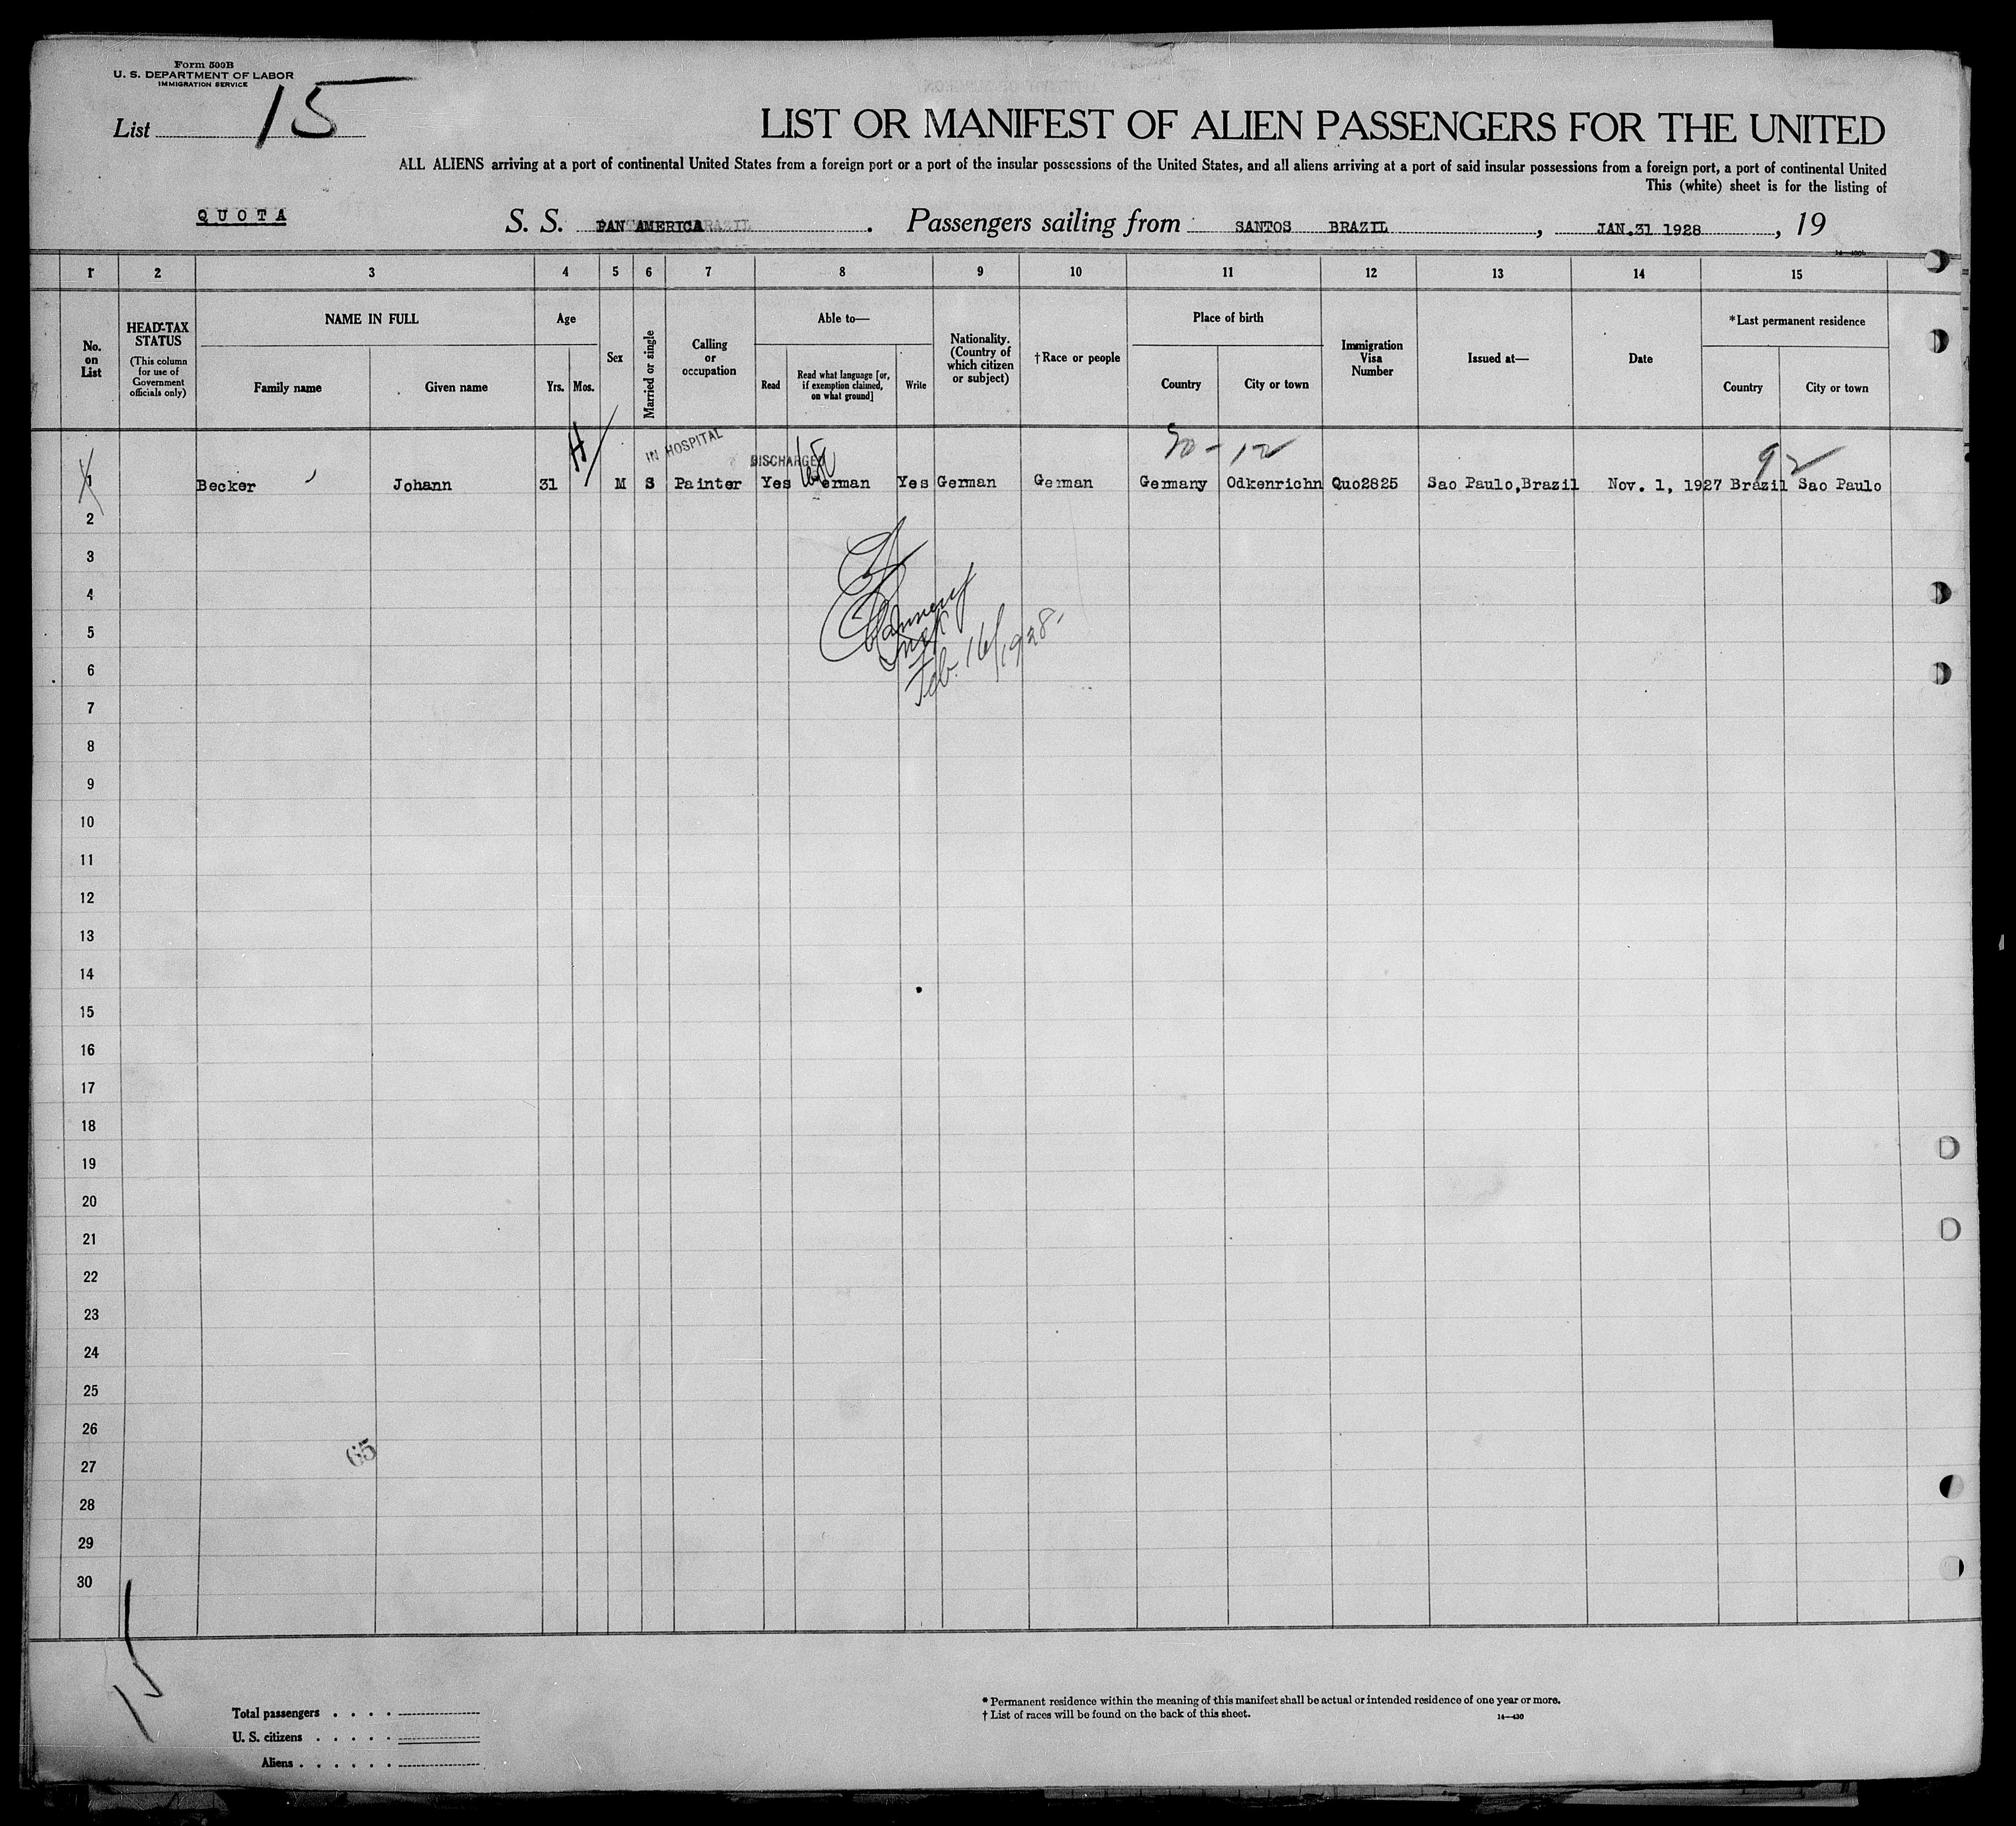 Form 500B
U. S. DEPARTMENT OF LABOR
IMMIGRATION SERVICE
List 15
LIST OR MANIFEST OF ALIEN PASSENGERS FOR THE UNITED
ALL ALIENS arriving at a port of continental United States from a foreign port or a port of the insular possessions of the United States, and all aliens arriving at a port of said insular possessions from a foreign port, a port of continental United
This (white) sheet is for the listing of
QUOTA
S. S. PAN AMERICA. Passengers sailing from SANTOS BRAZIL, JAN.31 1928, 19
1 2 3 4 5 6 7 8 9 10 11 12 13 14 15
No. on List
HEAD-TAX STATUS
(This column for use of Government officials only)
NAME IN FULL
Family name
Given name
Age
Yrs.
Mos.
Sex
Married or single
Calling or occupation
Able to—
Read
Read what language [or, if exemption claimed, on what ground]
Write
Nationality. (Country of which citizen or subject)
†Race or people
Place of birth
Country
City or town
Immigration Visa Number
Issued at—
Date
*Last permanent residence
Country
City or town
IN HOSPITAL
DISCHARGED
92
1 Becker Johann 31 M S Painter Yes German Yes German German Germany Odkenrichn Quo2825 Sao Paulo,Brazil Nov. 1, 1927 Brazil Sao Paulo
2
3
4
5
Feb. 16/1928-
6
7
8
9
10
11
12
13
14
15
16
17
18
19
20
21
22
23
24
25
26
65
27
28
29
30
15
Total passengers
U. S. citizens
Aliens
* Permanent residence within the meaning of this manifest shall be actual or intended residence of one year or more.
† List of races will be found on the back of this sheet.
14—430